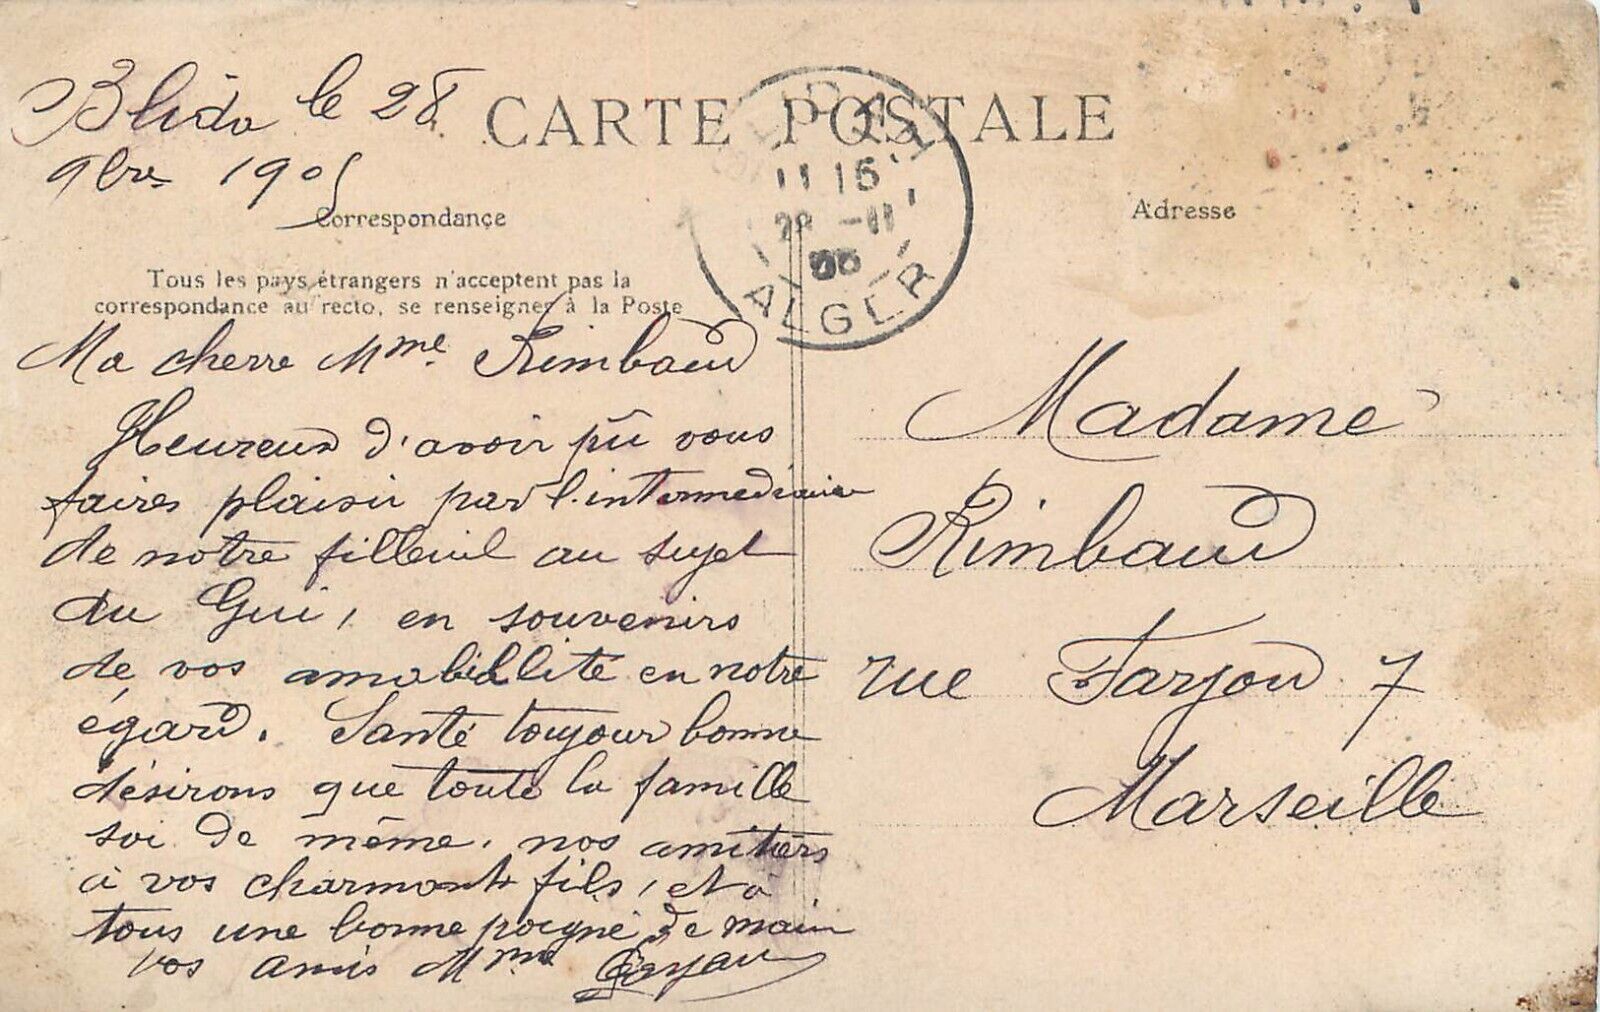 Blida le 28
9bre 1905
CARTE POSTALE
BLIDA
11 15
28 -11
05
ALGER
Correspondance
Adresse
Tous les pays étrangers n'acceptent pas la
correspondance au recto, se renseigner à la Poste
Ma cherre Mme Rimbaud
Heureux d'avoir pû vous
faires plaisir par l'intermediaire
de notre filleuil au sujet
du Gui, en souvenirs
de vos amabilité en notre
égard. Santé toujour bonne
désirons que toute la famille
soi de même. nos amitiers
à vos charmant fils, et à
tous une bonne poigné de main
vos amis Mme
Madame
Rimbaud
rue Farjon 7
Marseille